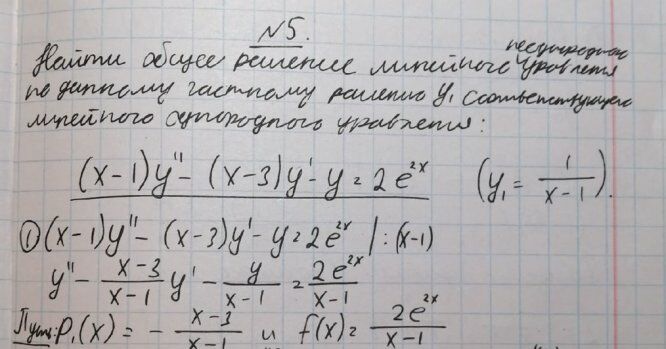 №5.
Найти общее решение линейного неоднородного уравнения
по данному частному решению y₁ соответствующего
линейного однородного уравнения:
(x-1)y'' - (x-3)y' - y = 2e^{2x} (y₁ = 1/(x-1)).
① (x-1)y'' - (x-3)y' - y = 2e^{2x} | : (x-1)
y'' - (x-3)/(x-1) y' - y/(x-1) = 2e^{2x}/(x-1)
Пусть: P₁(x) = - (x-3)/(x-1) и f(x) = 2e^{2x}/(x-1)